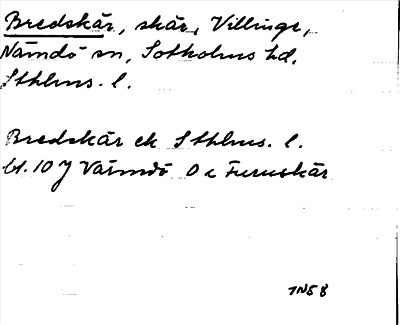 Bredskär, skär, Villinge,
Nämdö sn, Sotholms hd.
Sthlms. l.
Bredskär ek Sthlms. l.
bl. 10 J Värmdö O c Furuskär
1N5 B